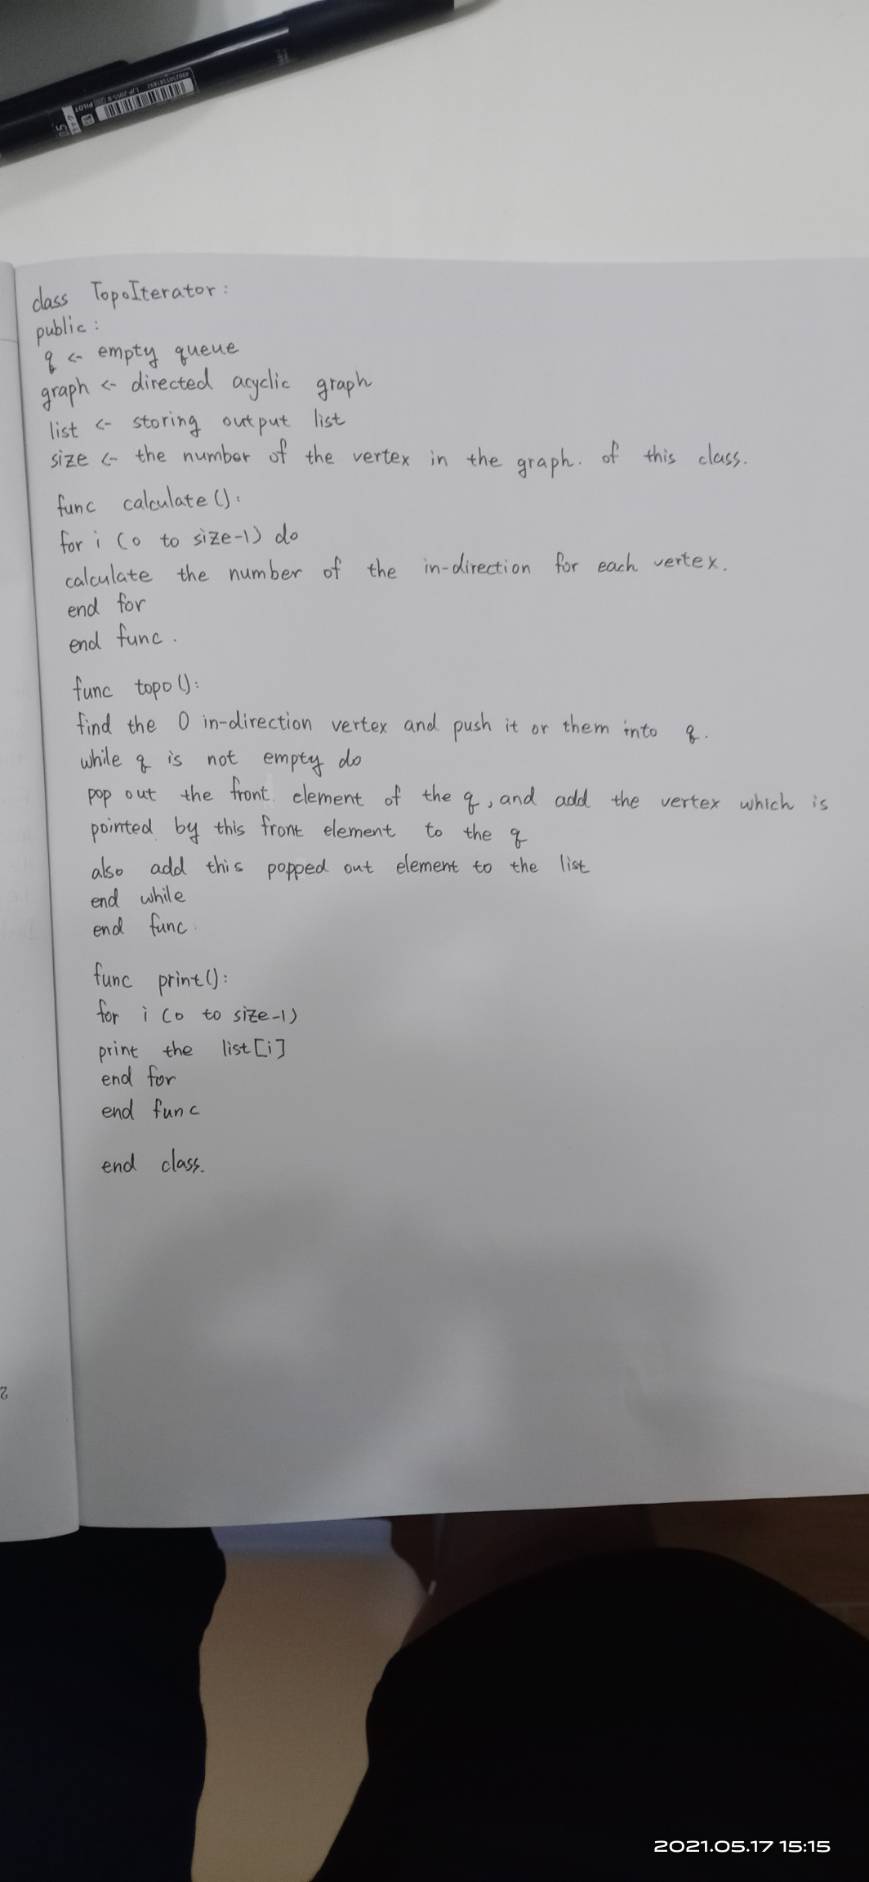 class TopoIterator:
public:
q <- empty queue
graph <- directed acyclic graph
list <- storing output list
size <- the number of the vertex in the graph. of this class.
func calculate():
for i (0 to size-1) do
calculate the number of the in-direction for each vertex.
end for
end func.
func topo():
find the 0 in-direction vertex and push it or them into q.
while q is not empty do
pop out the front element of the q, and add the vertex which is
pointed by this front element to the q
also add this popped out element to the list
end while
end func.
func print():
for i (0 to size-1)
print the list[i]
end for
end func
end class.
2
2021.05.17 15:15